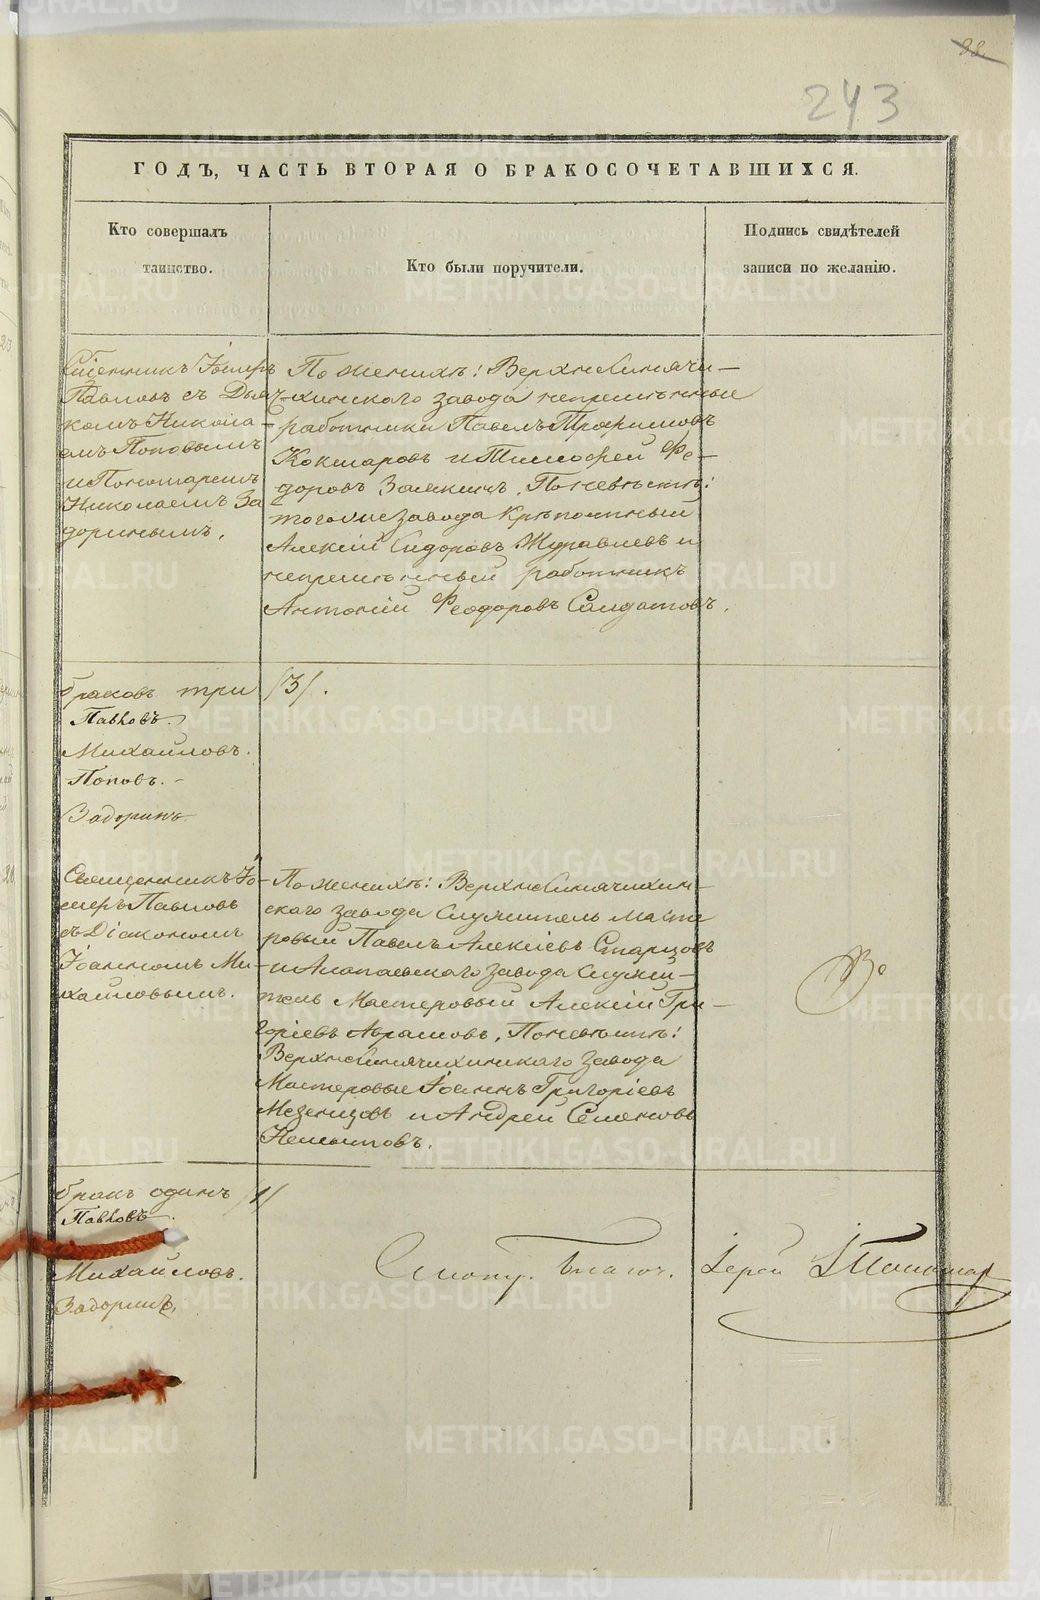 88
243
ГОДЪ, ЧАСТЬ ВТОРАЯ О БРАКОСОЧЕТАВШИХСЯ.
Кто совершалъ
таинство.
Кто были поручители.
Подпись свидѣтелей
записи по желанію.
Священникъ Іосифъ
Павловъ съ Дьяч-
комъ Никола-
емъ Поповымъ
и Пономаремъ
Николаемъ За
доринымъ.
По женихѣ: ВерхнеСинячи-
хинскаго завода непремѣнные
работники Павелъ Трофимовъ
Кокшаровъ и Тимофей Фе-
доровъ Замякинъ. По невѣстѣ:
тогоже завода Крѣпостный
Алексій Сидоровъ Журавлевъ и
непремѣнный работникъ
Антоній Феодоровъ Солдатовъ.
браковъ три /3/.
Павловъ.
Михайловъ.
Поповъ.
Задоринъ
Священникъ Іо-
сифъ Павловъ
съ Діакономъ
Іоанномъ Ми-
хайловымъ.
По женихѣ: ВерхнеСинячихин-
скаго завода Служитель Масте
ровый Павелъ Алексіевъ Старцовъ
и Алапаевскаго завода Служи-
тель Мастеровый Алексій Гри-
горіевъ Абрамовъ. По невѣстѣ:
ВерхнеСинячихинскаго завода
Мастеровые Іоаннъ Григоріевъ
Мезенцовъ и Андрей Семеновъ
Немытовъ.
бракъ одинъ /1/
Павловъ.
Михайловъ.
Задоринъ.
Благоч. Іерей